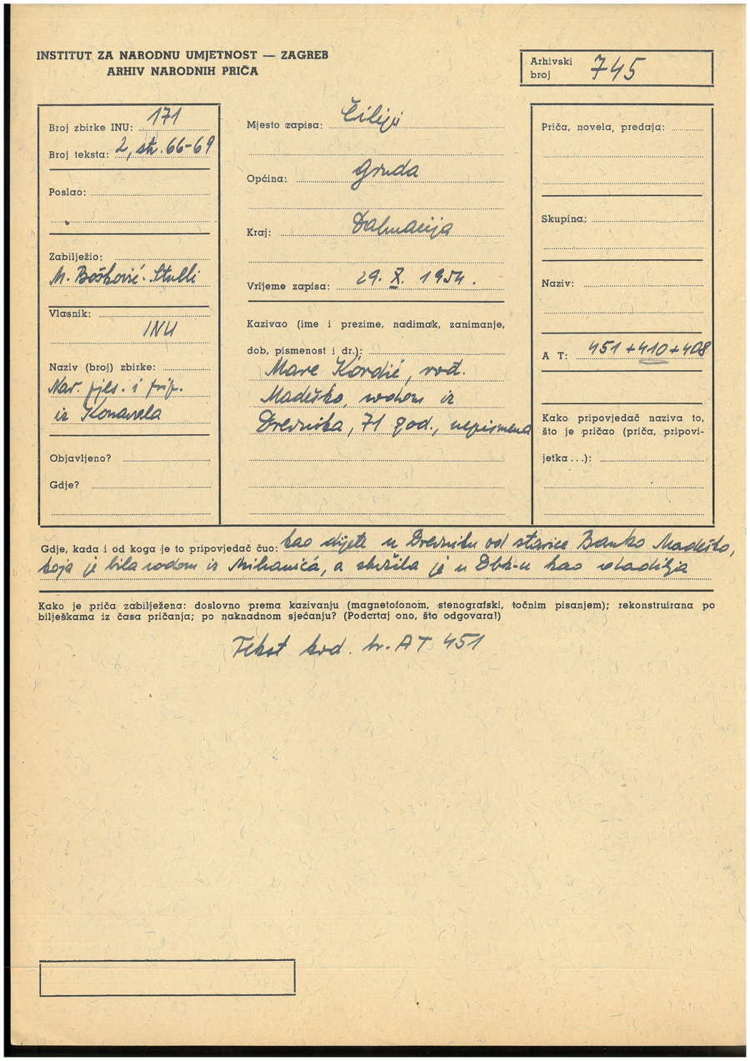 INSTITUT ZA NARODNU UMJETNOST — ZAGREB
ARHIV NARODNIH PRIČA
Arhivski broj 745
Broj zbirke INU: 171
Broj teksta: 2, str. 66-69
Poslao:
Zabilježio:
M. Bošković-Stulli
Vlasnik:
INU
Naziv (broj) zbirke:
Nar. pjes. i prip.
iz Konavala
Objavljeno?
Gdje?
Mjesto zapisa: Čilipi
Općina: Gruda
Kraj: Dalmacija
Vrijeme zapisa: 29. X. 1954.
Kazivao (ime i prezime, nadimak, zanimanje,
dob, pismenost i dr.):
Mare Kordić, rođ.
Madeško, rodom iz
Drevnika, 71 god., nepismena
Priča, novela, predaja:
Skupina:
Naziv:
A T: 451 + 410 + 408
Kako pripovjedač naziva to,
što je pričao (priča, pripovi-
jetka ...):
Gdje, kada i od koga je to pripovjedač čuo: kao dijete u Drevniku od starice Banko Madeško,
koja je bila rodom iz Mihanića, a služila je u Dbk-u kao mladilja
Kako je priča zabilježena: doslovno prema kazivanju (magnetofonom, stenografski, točnim pisanjem); rekonstruirana po
bilješkama iz časa pričanja; po naknadnom sjećanju? (Podcrtaj ono, što odgovara!)
Tekst kod br. AT 451